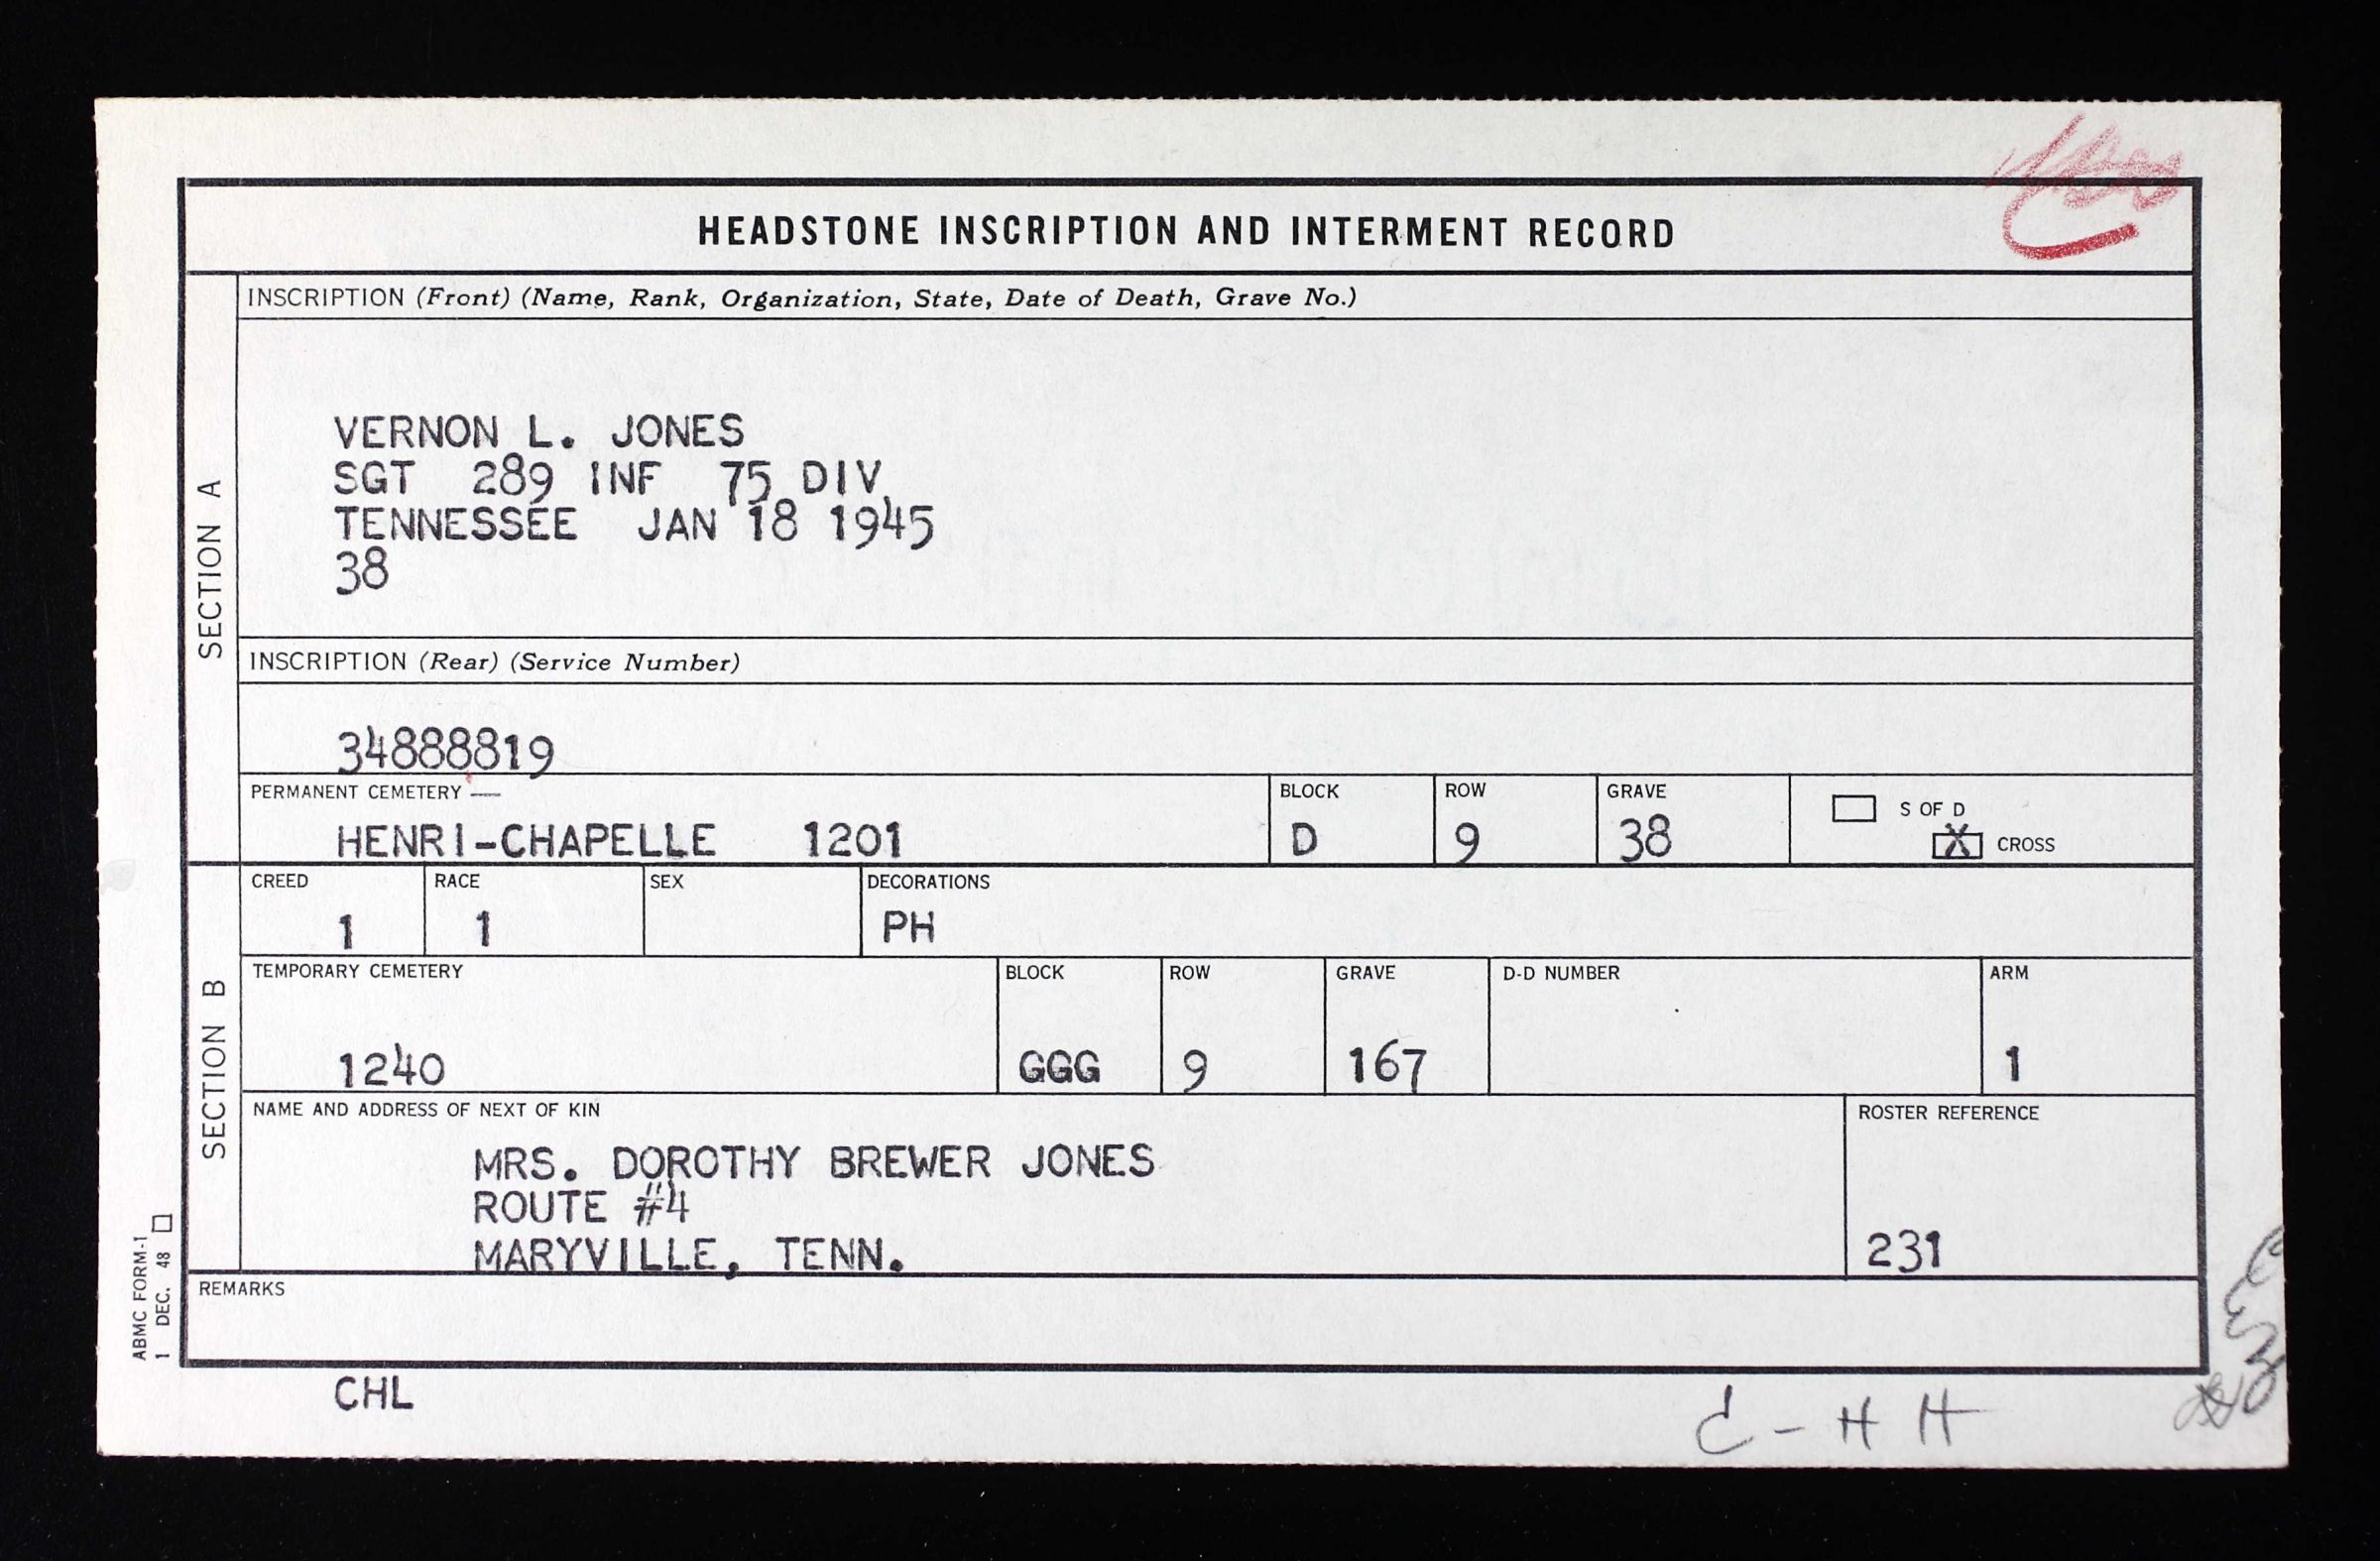 HEADSTONE INSCRIPTION AND INTERMENT RECORD
SECTION A
INSCRIPTION (Front) (Name, Rank, Organization, State, Date of Death, Grave No.)
VERNON L. JONES
SGT 289 INF 75 DIV
TENNESSEE JAN 18 1945
38
INSCRIPTION (Rear) (Service Number)
34888819
PERMANENT CEMETERY —
HENRI-CHAPELLE 1201
BLOCK
D
ROW
9
GRAVE
38
S OF D
X CROSS
SECTION B
CREED
1
RACE
1
SEX
DECORATIONS
PH
TEMPORARY CEMETERY
1240
BLOCK
GGG
ROW
9
GRAVE
167
D-D NUMBER
ARM
1
NAME AND ADDRESS OF NEXT OF KIN
MRS. DOROTHY BREWER JONES
ROUTE #4
MARYVILLE, TENN.
ROSTER REFERENCE
231
REMARKS
ABMC FORM-1
1 DEC. 48
CHL
C - H H